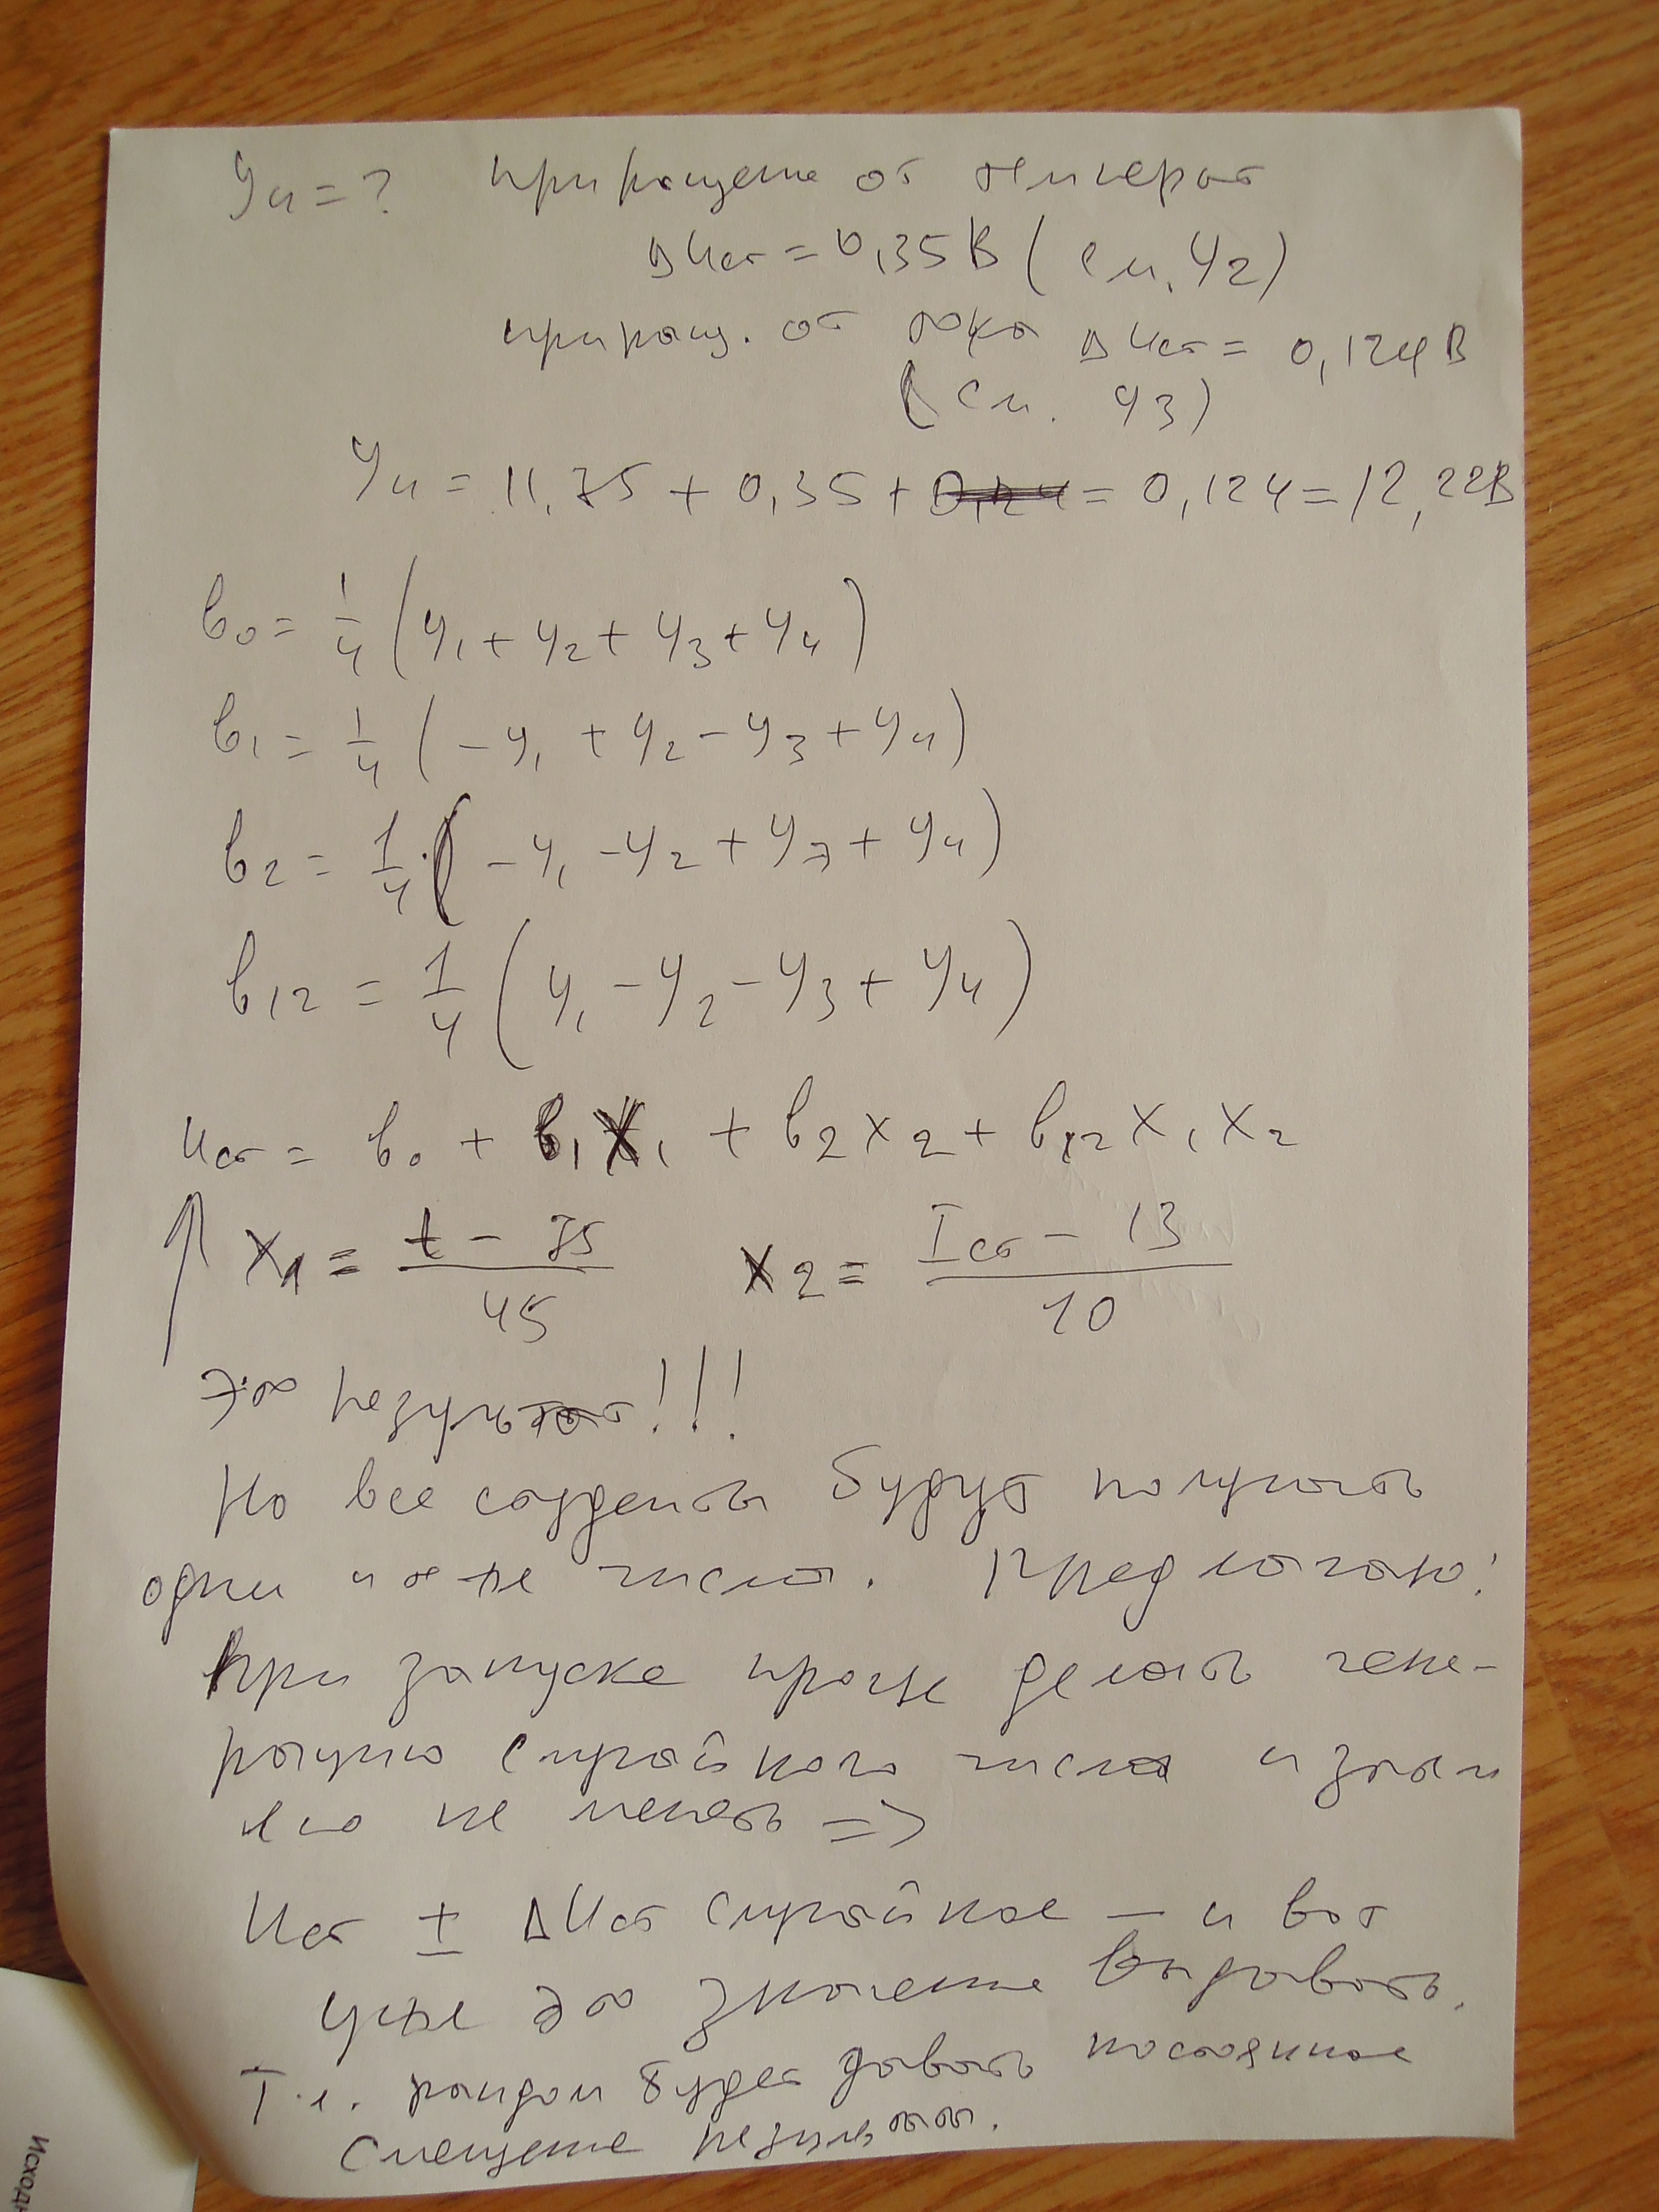 У4 = ? приращение от температ
ΔUст = 0,35 В ( см. У2)
приращ. от тока ΔUст = 0,124 В
( см. У3)
У4 = 11,75 + 0,35 + 0,124 = 0,124 = 12,22В
b0 = 1/4 (У1 + У2 + У3 + У4)
b1 = 1/4 ( -У1 + У2 - У3 + У4)
b2 = 1/4 · ( -У1 - У2 + У3 + У4)
b12 = 1/4 ( У1 - У2 - У3 + У4)
Uст = b0 + b1X1 + b2X2 + b12X1X2
X1 = t - 75 / 45 X2 = Iст - 13 / 10
Это результат!!!
Но все студенты будут получать
одни и те же числа. Предлагаю:
При запуске проги делать гене-
рацию случайного числа и затем
его не менять =>
Uст ± ΔUст случайное — и вот
уже это значение выдавать.
Т.е. рандом будет давать постоянное
смещение результата.
Исход